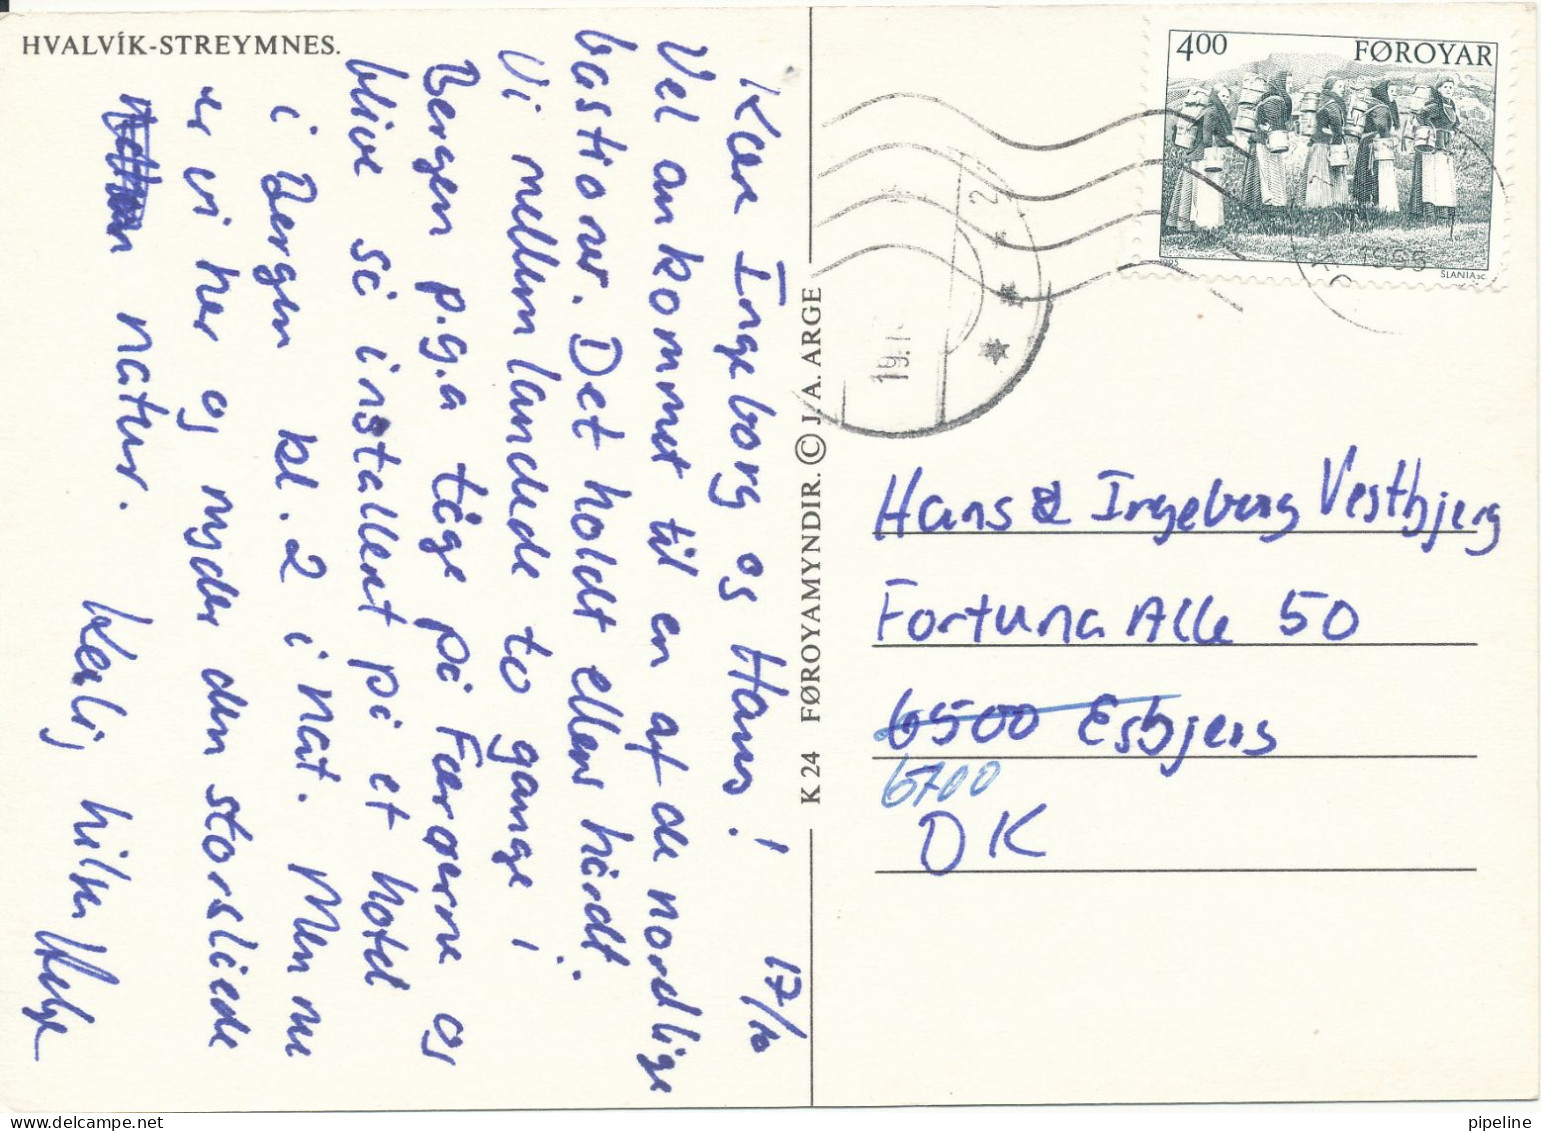 HVALVÍK-STREYMNES.
17/10
Kære Ingeborg og Hans!
Vel ankommet til en af de nordlige
bastioner. Det holdt ellers hårdt.
Vi mellemlandede to gange!
Bergen p.g.a tåge på Færøerne og
blive så installeret på et hotel
i Bergen kl. 2 i nat. Men nu
er vi her og nyder den storslåede
natur.
Kærlig hilsen Helge
K 24 FØROYAMYNDIR. © J. A. ARGE
400 FØROYAR
1985
SLANIA SC.
19.1
2
Hans & Ingeborg Vestbjerg
Fortuna Alle 50
6500 Esbjerg
6700
DK
pipeline